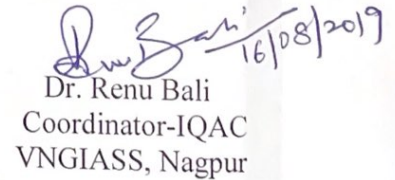 Renu Bali
16/08/2019
Dr. Renu Bali
Coordinator-IQAC
VNGIASS, Nagpur